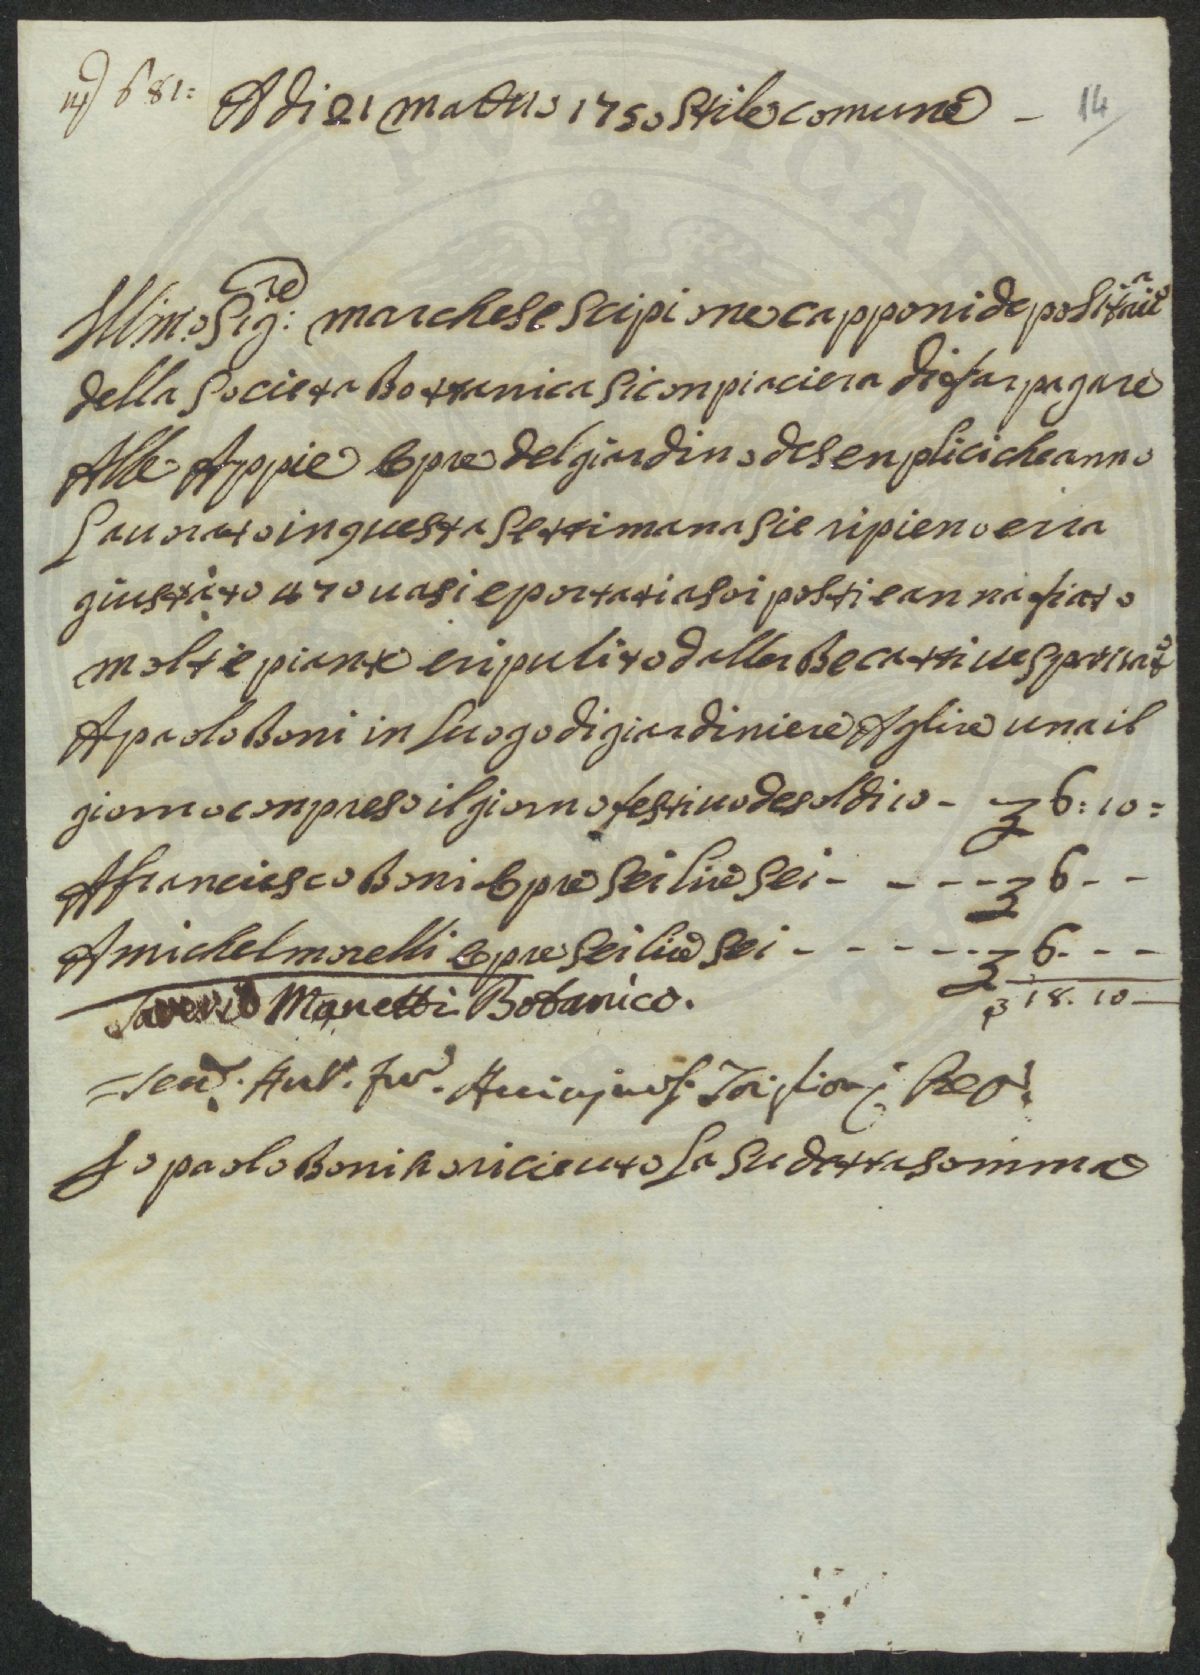 14) 681:
Adi 21 Marzo 1750 Stile comune - 14
Illmo Sig:re marchese Scipione capponi depositario
della Societa Bottanica Si conpiaciera di far pagare
Alle Appie Opre del giardino de Senplici che anno
Lauorato in questa Settimana Si e ripieno e ra
giustato 470 uasi e portati a Soi posti e annafiato
molte piante e ripulito dalle Becattiue
A paolo Boni in luogo di giardiniere A lire una il
giorno conpreso il giorno festiuo de soldi 10 - 6: 10:
A franciesco Boni Opre Sei lire Sei - - - - 6 - -
A michel morelli Opre Sei lire Sei - - - - - 6 - - -
Saverio Manetti Botanico. 18. 10 -
Io paolo Boni ho riceuuto La Su detta somma